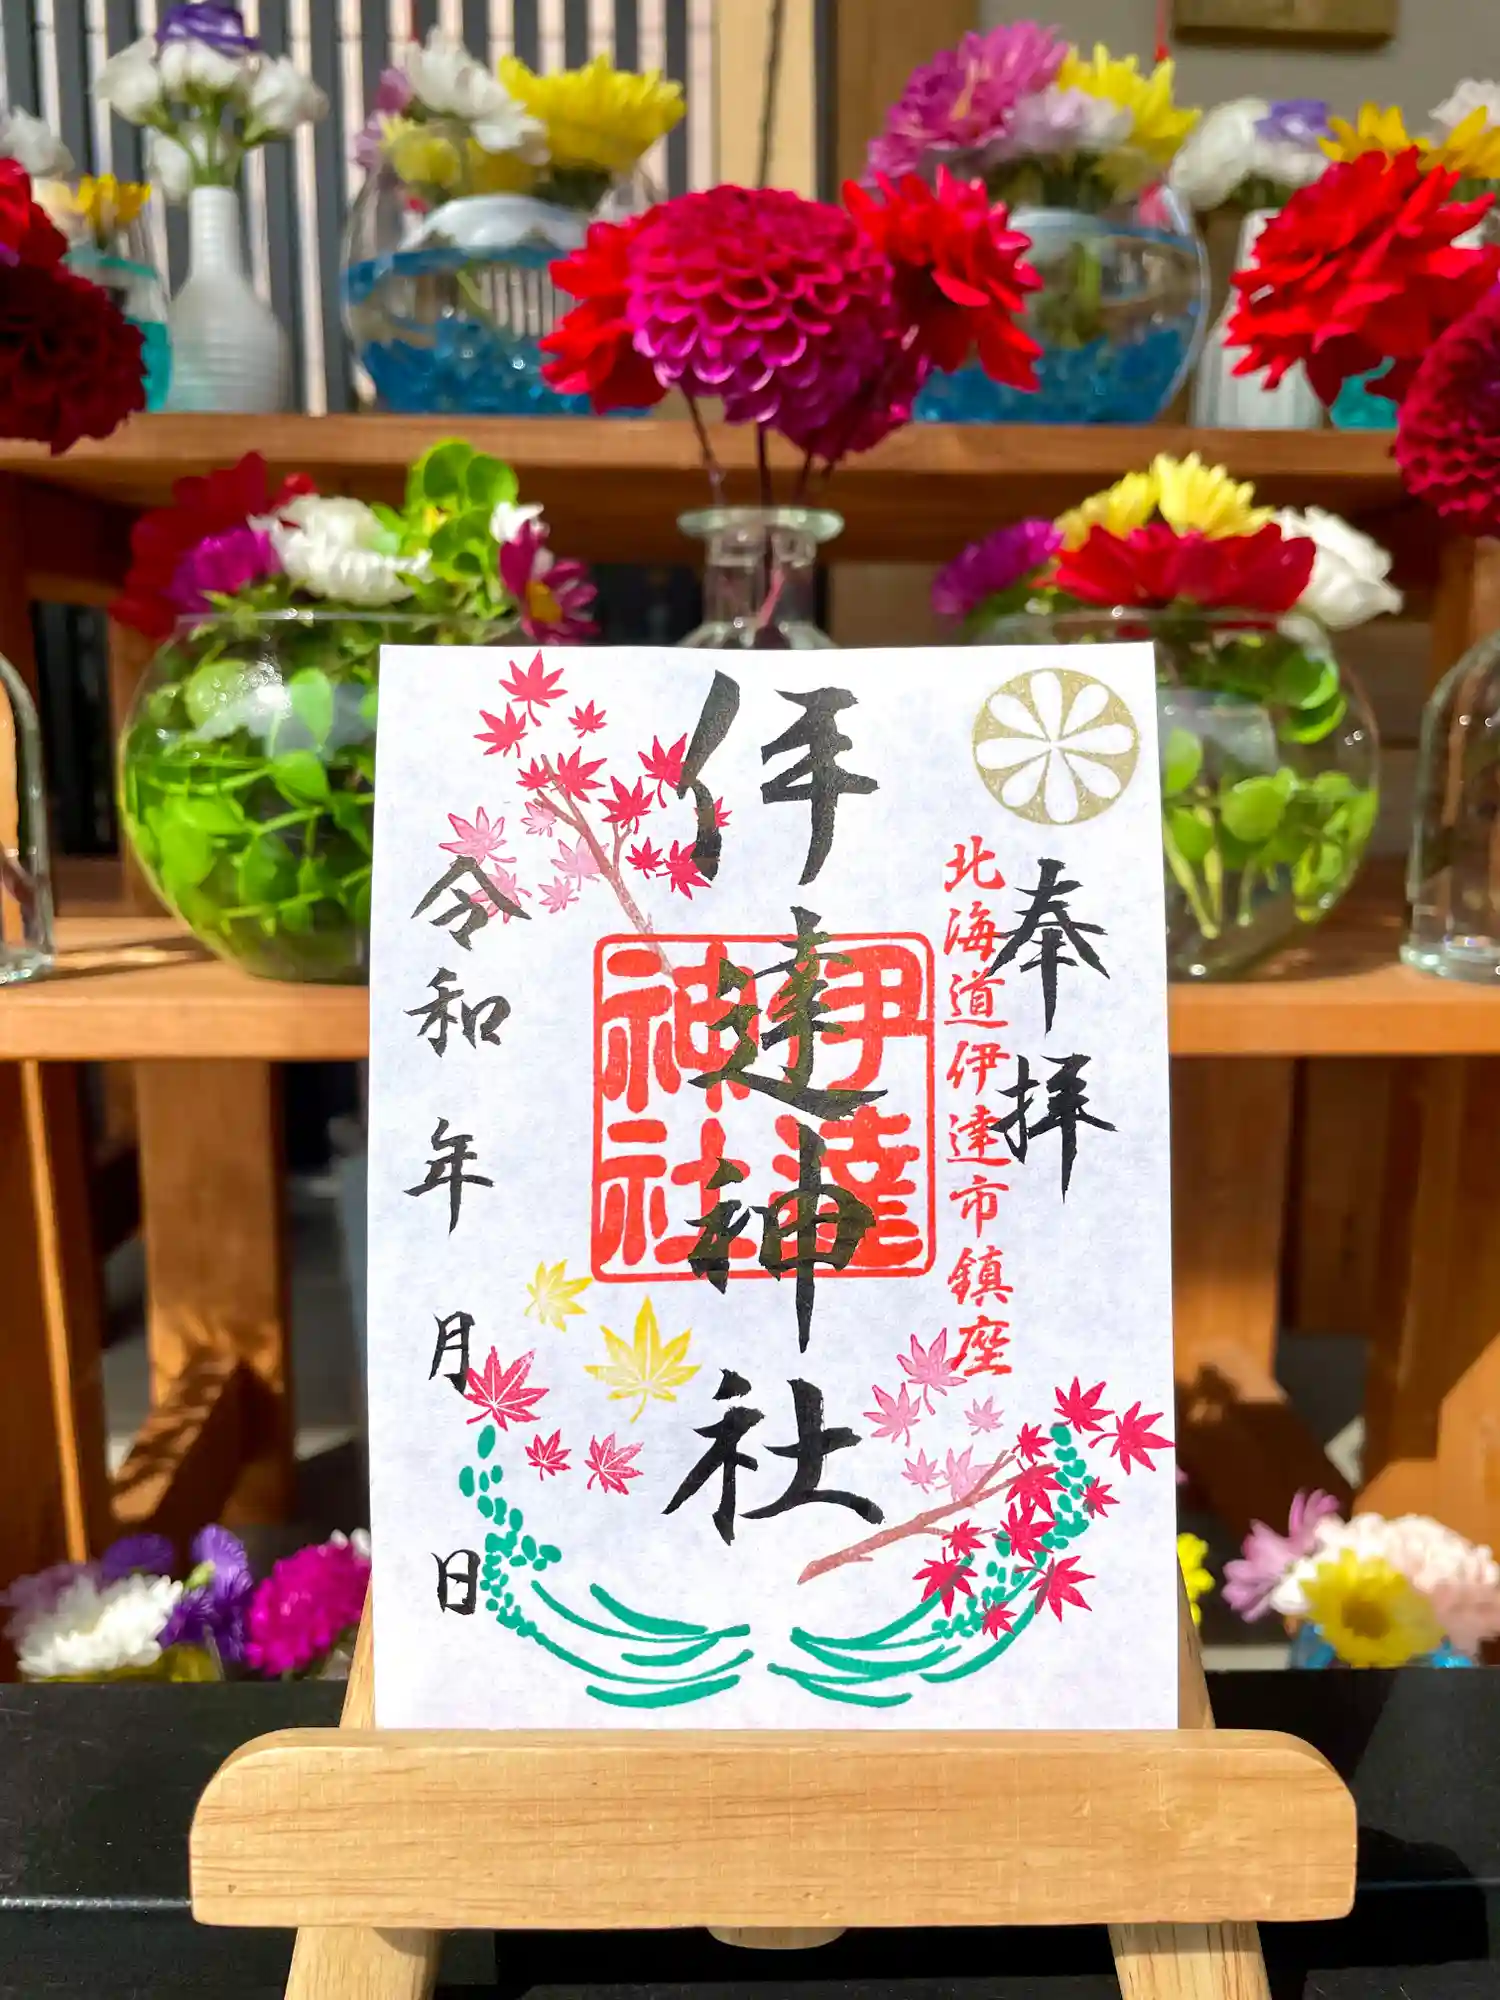 奉拝
北海道伊達市鎮座
伊達神社
伊達
神社
令和 年 月 日